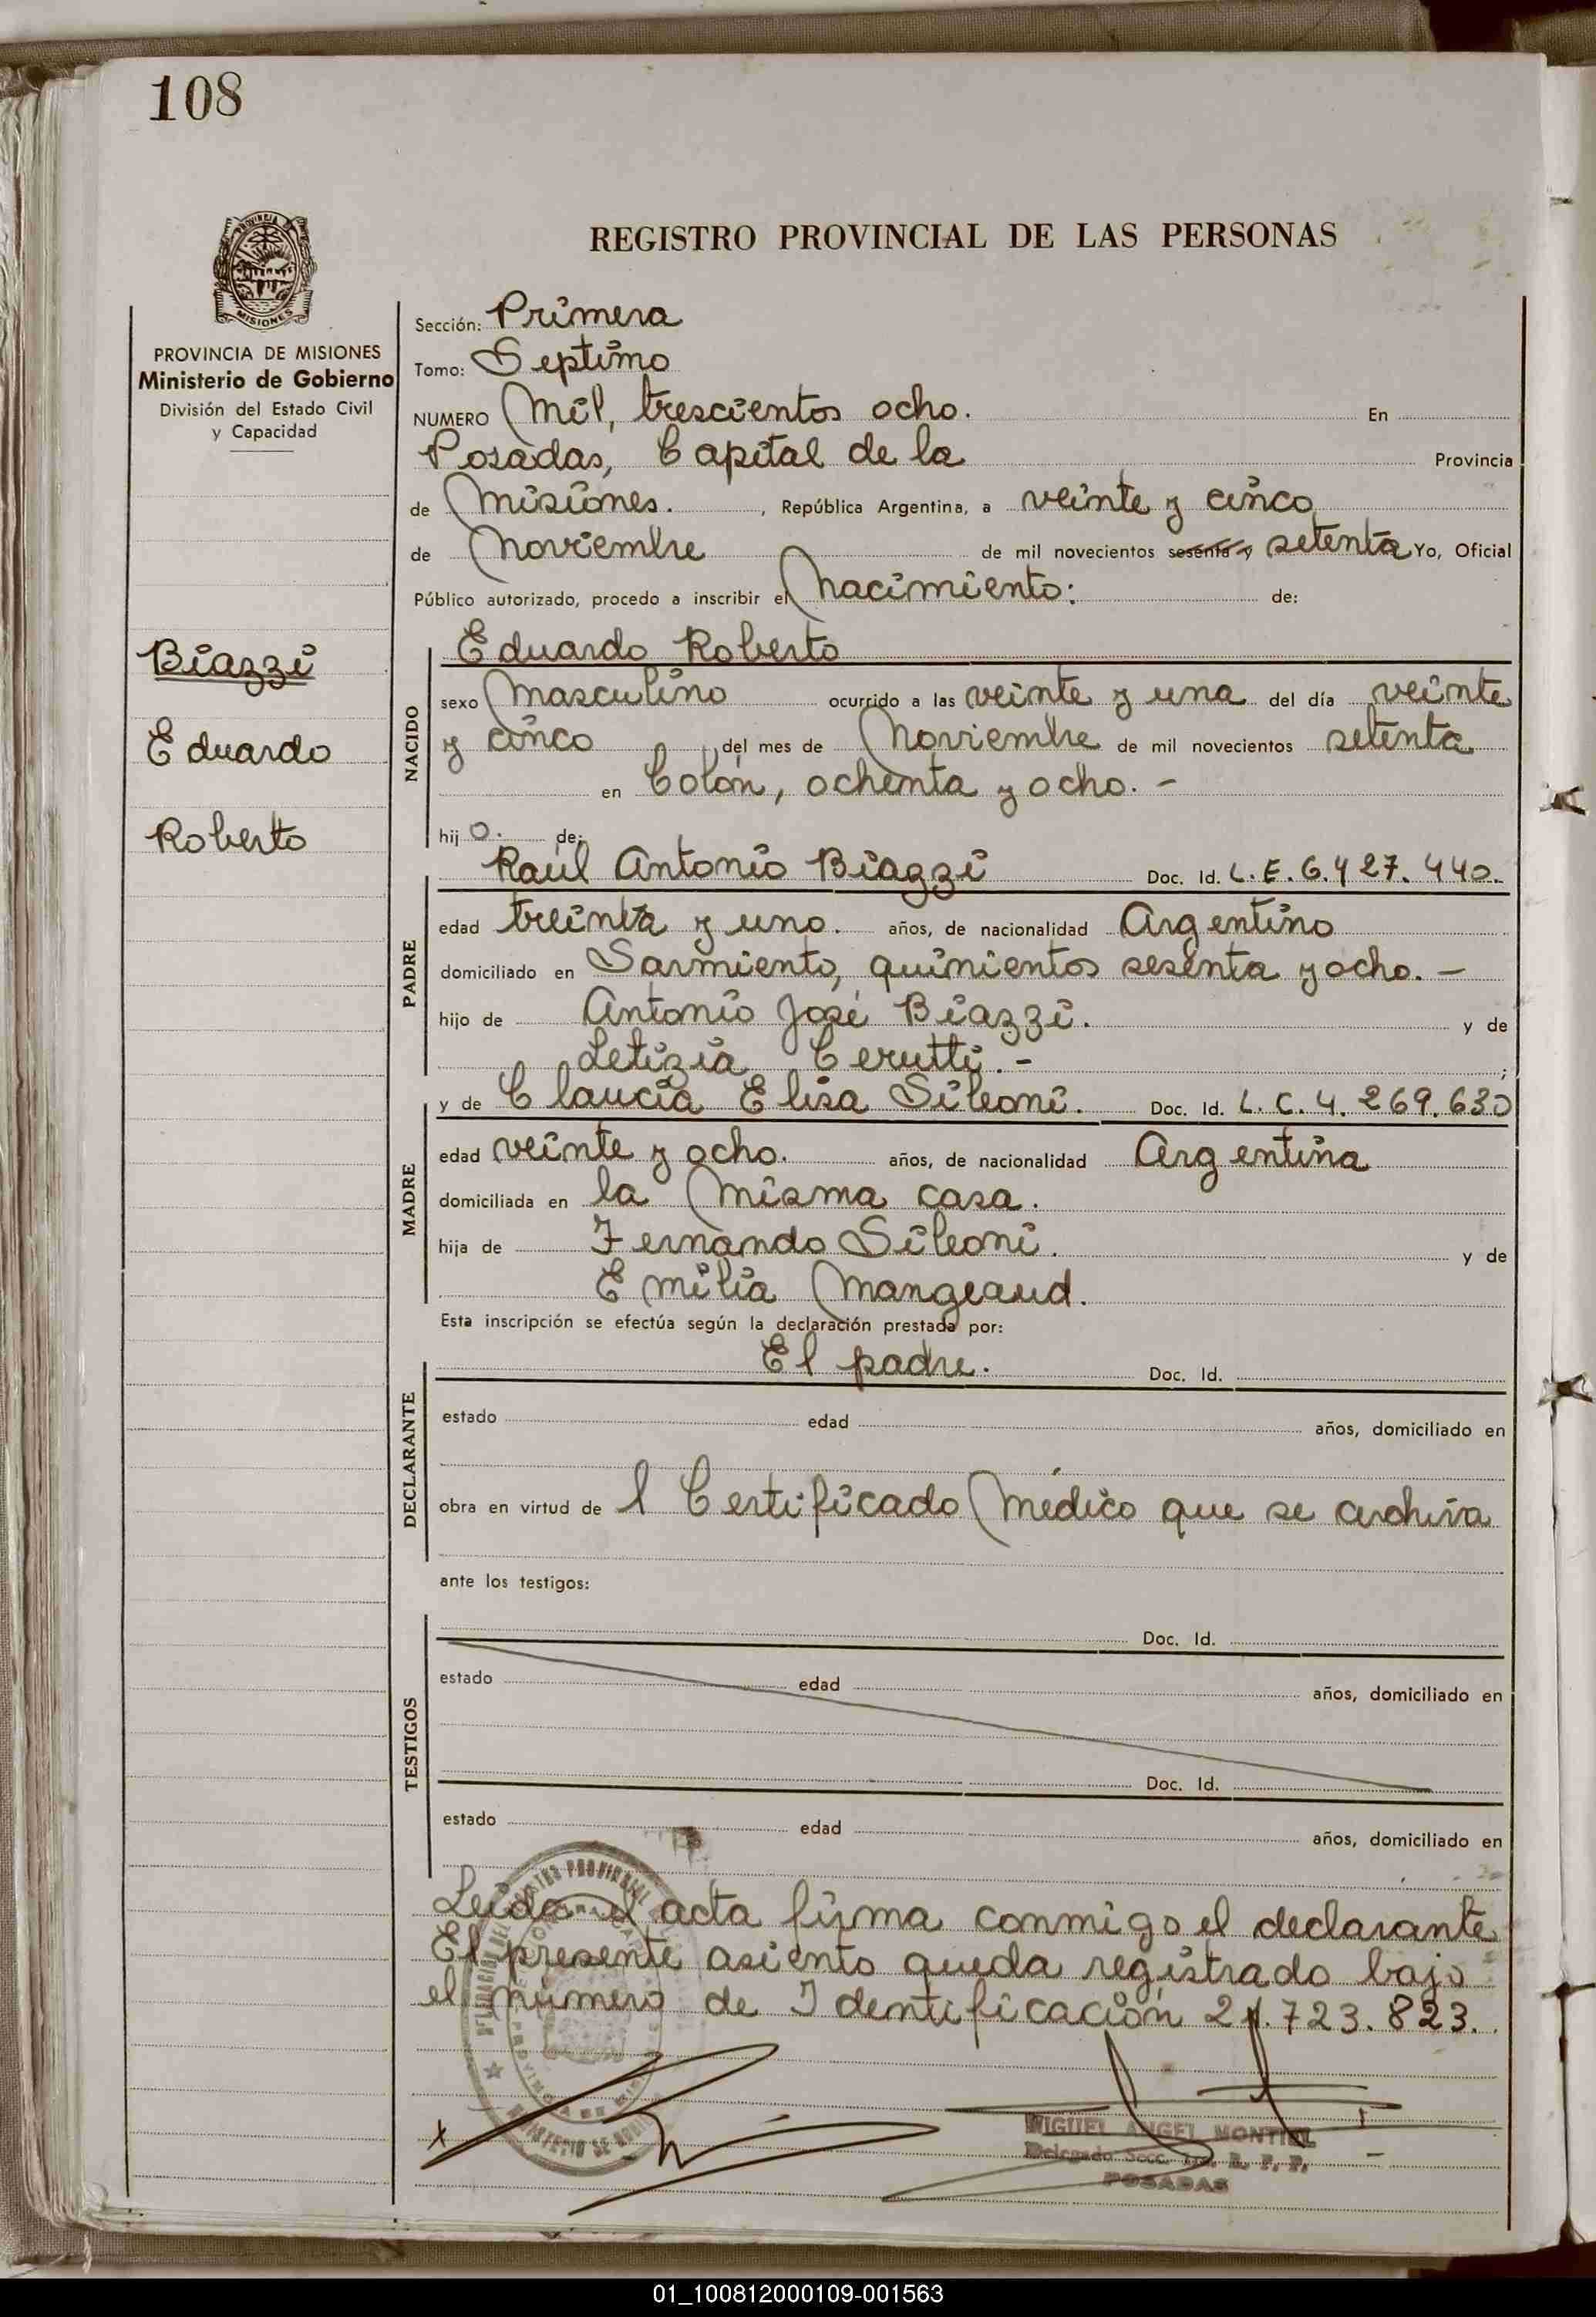 108
REGISTRO PROVINCIAL DE LAS PERSONAS
PROVINCIA DE MISIONES
Ministerio de Gobierno
División del Estado Civil
y Capacidad
Biazzi
Eduardo
Roberto
Sección: Primera
Tomo: Septimo
NUMERO Mil, trescientos ocho. En
Posadas, Capital de la Provincia
de Misiones. , República Argentina, a veinte y cinco
de Noviembre de mil novecientos sesenta y setenta Yo, Oficial
Público autorizado, procedo a inscribir el Nacimiento: de:
NACIDO
Eduardo Roberto
sexo Masculino ocurrido a las veinte y una del día veinte
y cinco del mes de Noviembre de mil novecientos setenta
en Colón, ochenta y ocho. -
hij o. de:
PADRE
Raúl Antonio Biazzi Doc. Id. L. E. 6.427.440.
edad treinta y uno. años, de nacionalidad Argentino
domiciliado en Sarmiento, quinientos sesenta y ocho. -
hijo de Antonio José Biazzi. y de
Letizia Cerutti. - ;
MADRE
y de Claucia Elisa Sileoni. Doc. Id. L. C. 4. 269.630
edad veinte y ocho. años, de nacionalidad Argentina
domiciliada en la misma casa.
hija de Fernando Sileoni. y de
Emilia Mangeaud.
Esta inscripción se efectúa según la declaración prestada por:
DECLARANTE
El padre. Doc. Id.
estado edad años, domiciliado en
obra en virtud de l Certificado Médico que se archiva
ante los testigos:
TESTIGOS
Doc. Id.
estado edad años, domiciliado en
Doc. Id.
estado edad años, domiciliado en
Leida el acta firma conmigo el declarante
El presente asiento queda registrado bajo
el número de Identificación 21.723.823.
MIGUEL ANGEL MONTIEL
Delegado Secc. R. P. P.
POSADAS
01_100812000109-001563